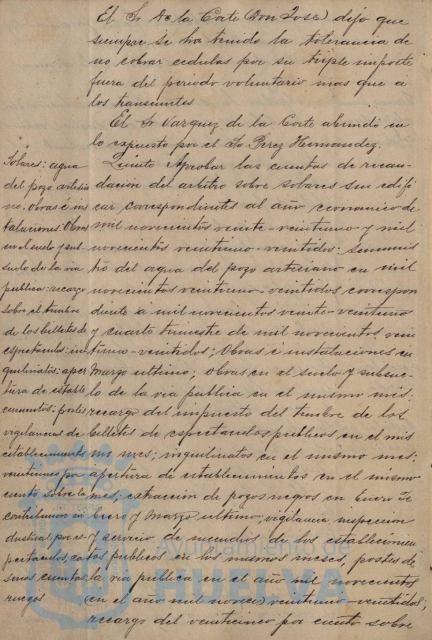 El Sr de la Corte (Don José) dijo que
siempre se ha tenido la tolerancia de
no cobrar cedulas por su triple importe
fuera del periodo voluntario mas que a
los transeuntes
El Sr Vazquez de la Corte abundó en
lo expuesto por el Sr Perez Hernandez.
Quinto Aprobar las cuentas de recau-
dación del arbitrio sobre solares sin edifi
car correspondientes al año economico de
mil novecientos veinte-veintiuno y mil
novecientos veintiuno-veintidos: suminis
tro del agua del pozo artesiano en mil
novecientos veintiuno-veintidos correspon
diente a mil novecientos veinte-veintiuno
y cuarto trimestre de mil novecientos vein
tiuno-veintidos; Obras é instalaciones en
Marzo ultimo; obras en el suelo y subsue-
lo de la via publica en el mismo mes:
recargo del impuesto del timbre de los
billetes de espectaculos publicos en el mis
mo mes; inquilinatos en el mismo mes;
apertura de establecimientos en el mismo
mes; extracción de pozos negros en Enero Fe
brero y Marzo ultimo, vigilancia inspeccion
y servicio de incendios de los establecimien
tos publicos en los mismos meses, postes de
la via publica en el año mil novecientos
(en el año mil nove) veintiuno-veintidos;
recargo del veinticinco por ciento sobre
Solares: agua
del pozo artesia
no: Obras é ins
talaciones: Obras
en el suelo y sub
suelo de la via
publica: recargo
sobre el timbre
de los billetes de
espectaculos: in
quilinatos: aper
tura de estable
cimientos: postes
vigilancias de
establecimientos
veinticinco por
ciento sobre la
contribucion in
dustrial por es
pectaculos,
cuentas
ruegos
Ayuntamiento de
HUELVA